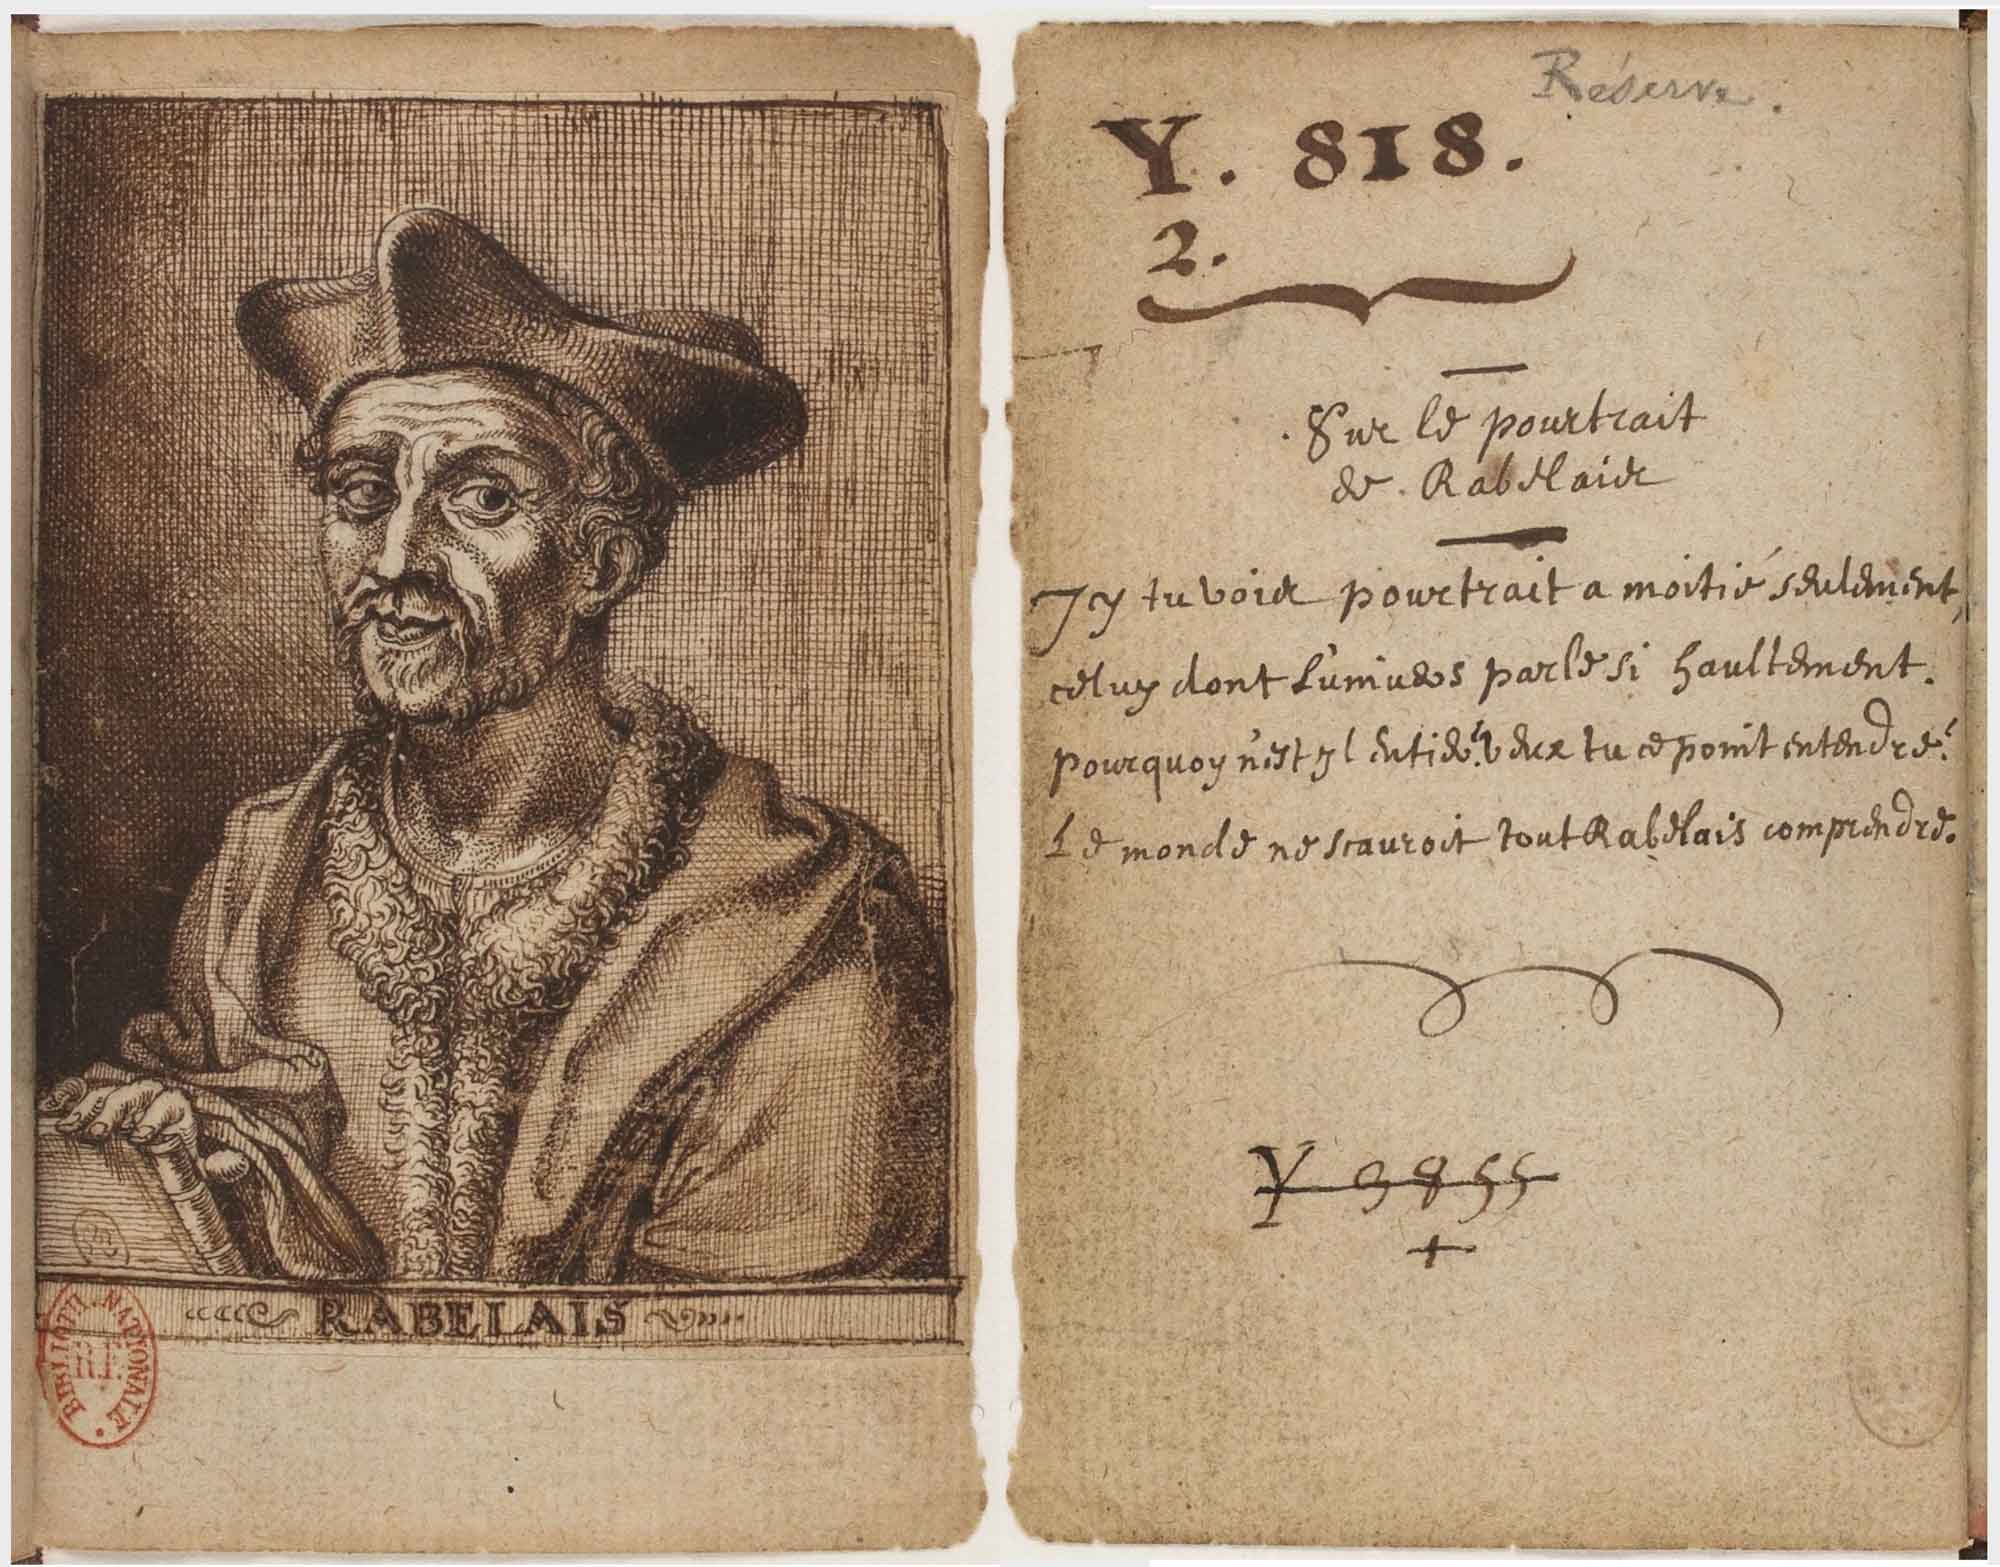 RABELAIS
BIBLIOTH. NATIONALE
R.F.
Réserve.
Y. 818.
2.
Sur le pourtrait
de Rabelais
Icy tu vois pourtrait a moitié seulement,
celuy dont L'univers parle si haultement.
pourquoy n'est yl entier? veux tu ce point entendre?
Le monde ne scauroit tout Rabelais comprendre.
Y 3855
+